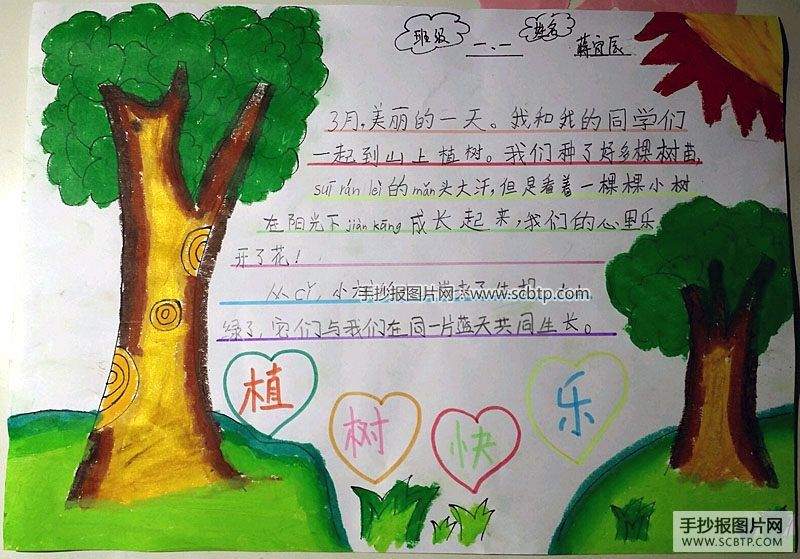 班级 一.一 姓名
3月，美丽的一天。我和我的同学们
一起到山上植树。我们种了好多棵树苗，
suī rán lèi 的 mǎn头大汗，但是看着一棵棵小树
在阳光下 jiàn kāng 成长起来，我们的心里乐
开了花！
从cǐ，小
手抄报图片网 www.scbtp.com
绿了，它们与我们在同一片蓝天共同生长。
植 树 快 乐
手抄报图片网
WWW.SCBTP.COM